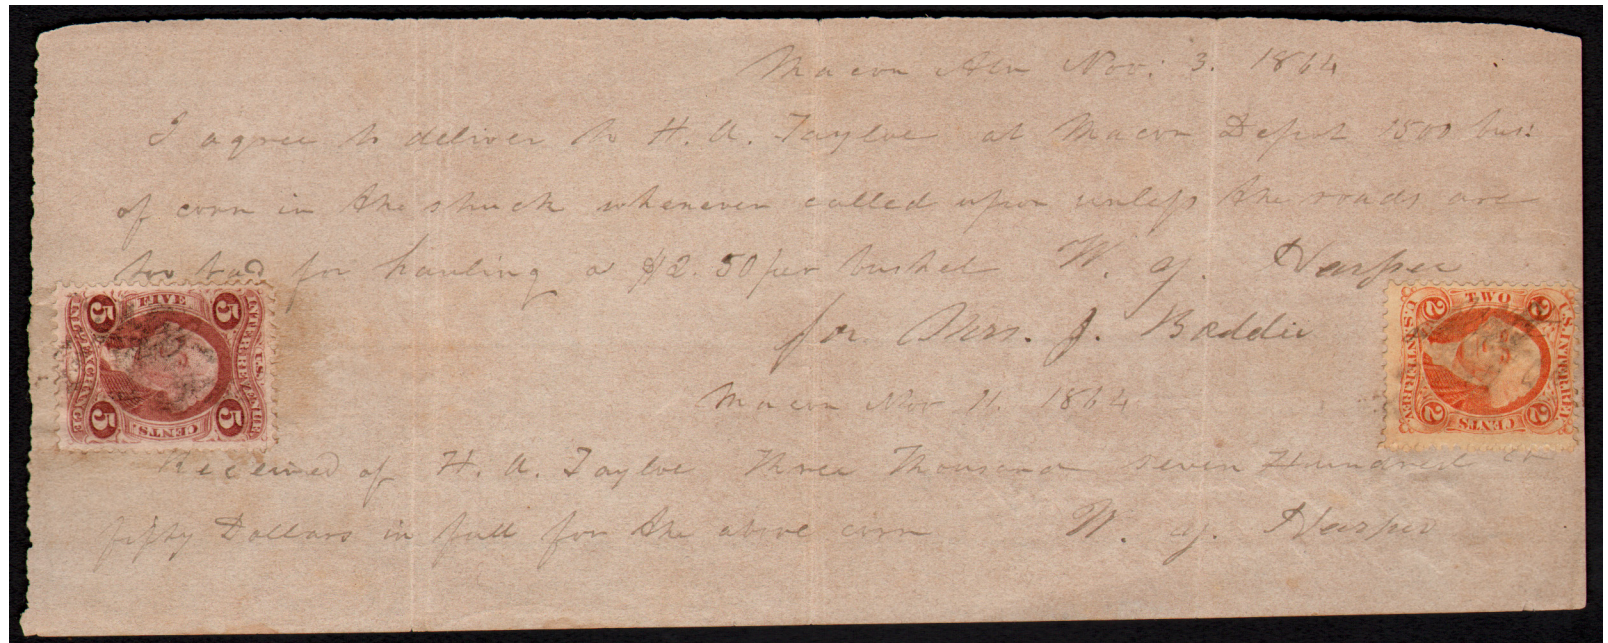 Macon Ala Nov. 3. 1864
I agree to deliver to H. A. Tayloe at Macon Depot 1500 bus:
of corn in the shuck whenever called upon unless the roads are
too bad for hauling a $2.50 per bushel W. J. Harper
for Mrs. J. Boddie
Macon Nov 11. 1864
Received of H. A. Tayloe Three Thousand seven Hundred &
fifty Dollars in full for the above corn W. J. Harper
U.S. INTER. REVENUE
FIVE
INLD. EXCHANGE
CENTS.
5 5 5 5
U.S. INTER. REV.
TWO
CENTS
2 2 2 2